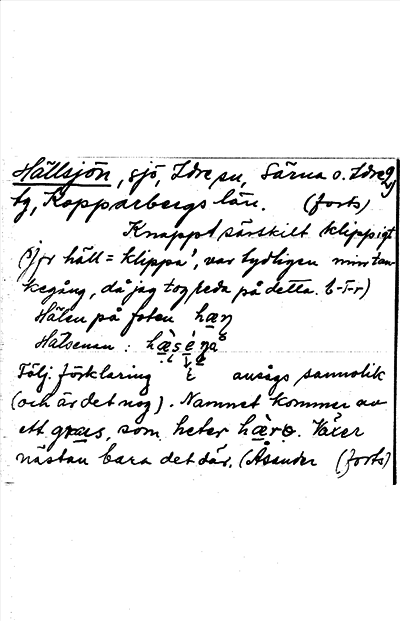 Hällsjön, sjö, Idre sn, Särna o. Idre
tg, Kopparbergs län. (forts)
Knappt särskilt klippigt
(jfr häll = klippa', var tydligen min tan-
kegång, då jag tog reda på detta. b-Tr)
Hälen på foten hæɳ
Hälsenan :
Följ. förklaring ansågs sannolik
(och är det nog). Namnet kommer av
ett græs, som heter hærɵ. Växer
nästan bara det där. (Åsander (forts)